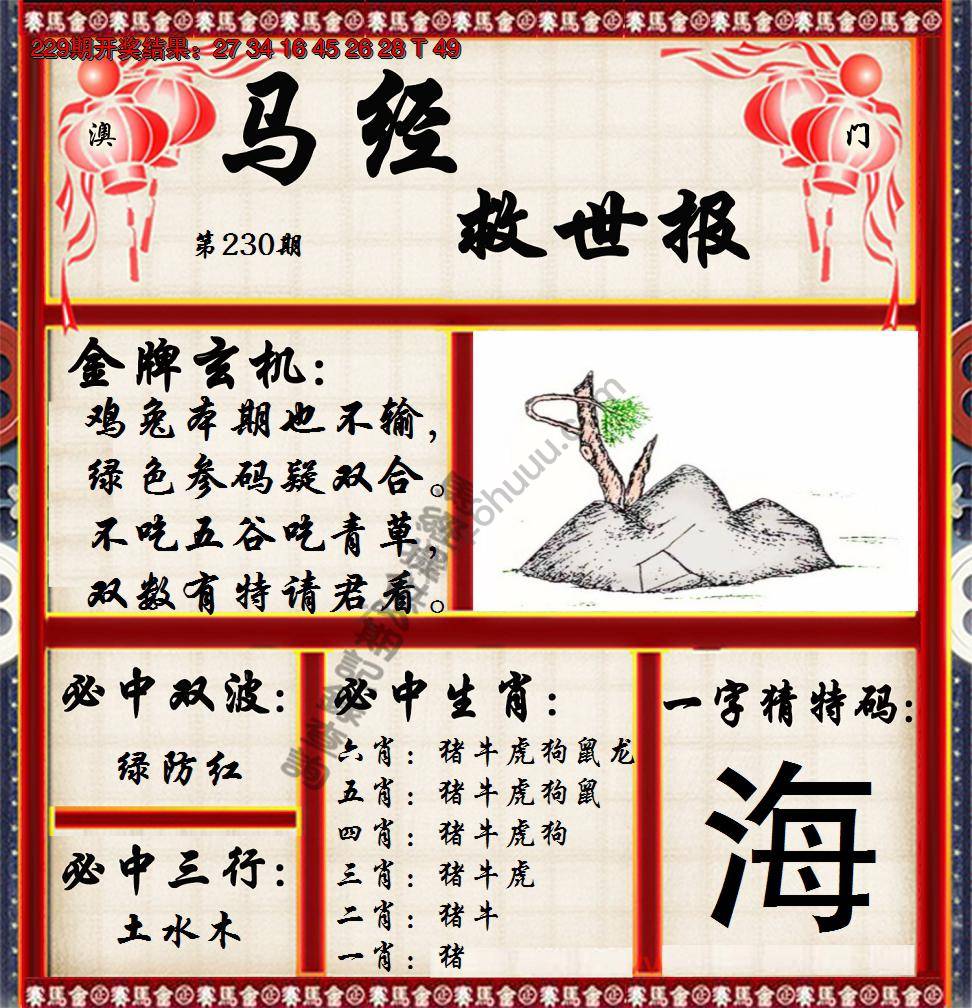 229期开奖结果：27 34 16 45 26 28 T 49
澳
门
马经
救世报
第230期
金牌玄机：
鸡兔本期也不输，
绿色参码疑双合。
不吃五谷吃青草，
双数有特请君看。
必中双波：
绿防红
必中三行：
土水木
必中生肖：
六肖：猪牛虎狗鼠龙
五肖：猪牛虎狗鼠
四肖：猪牛虎狗
三肖：猪牛虎
二肖：猪牛
一肖：猪
一字猜特码：
海